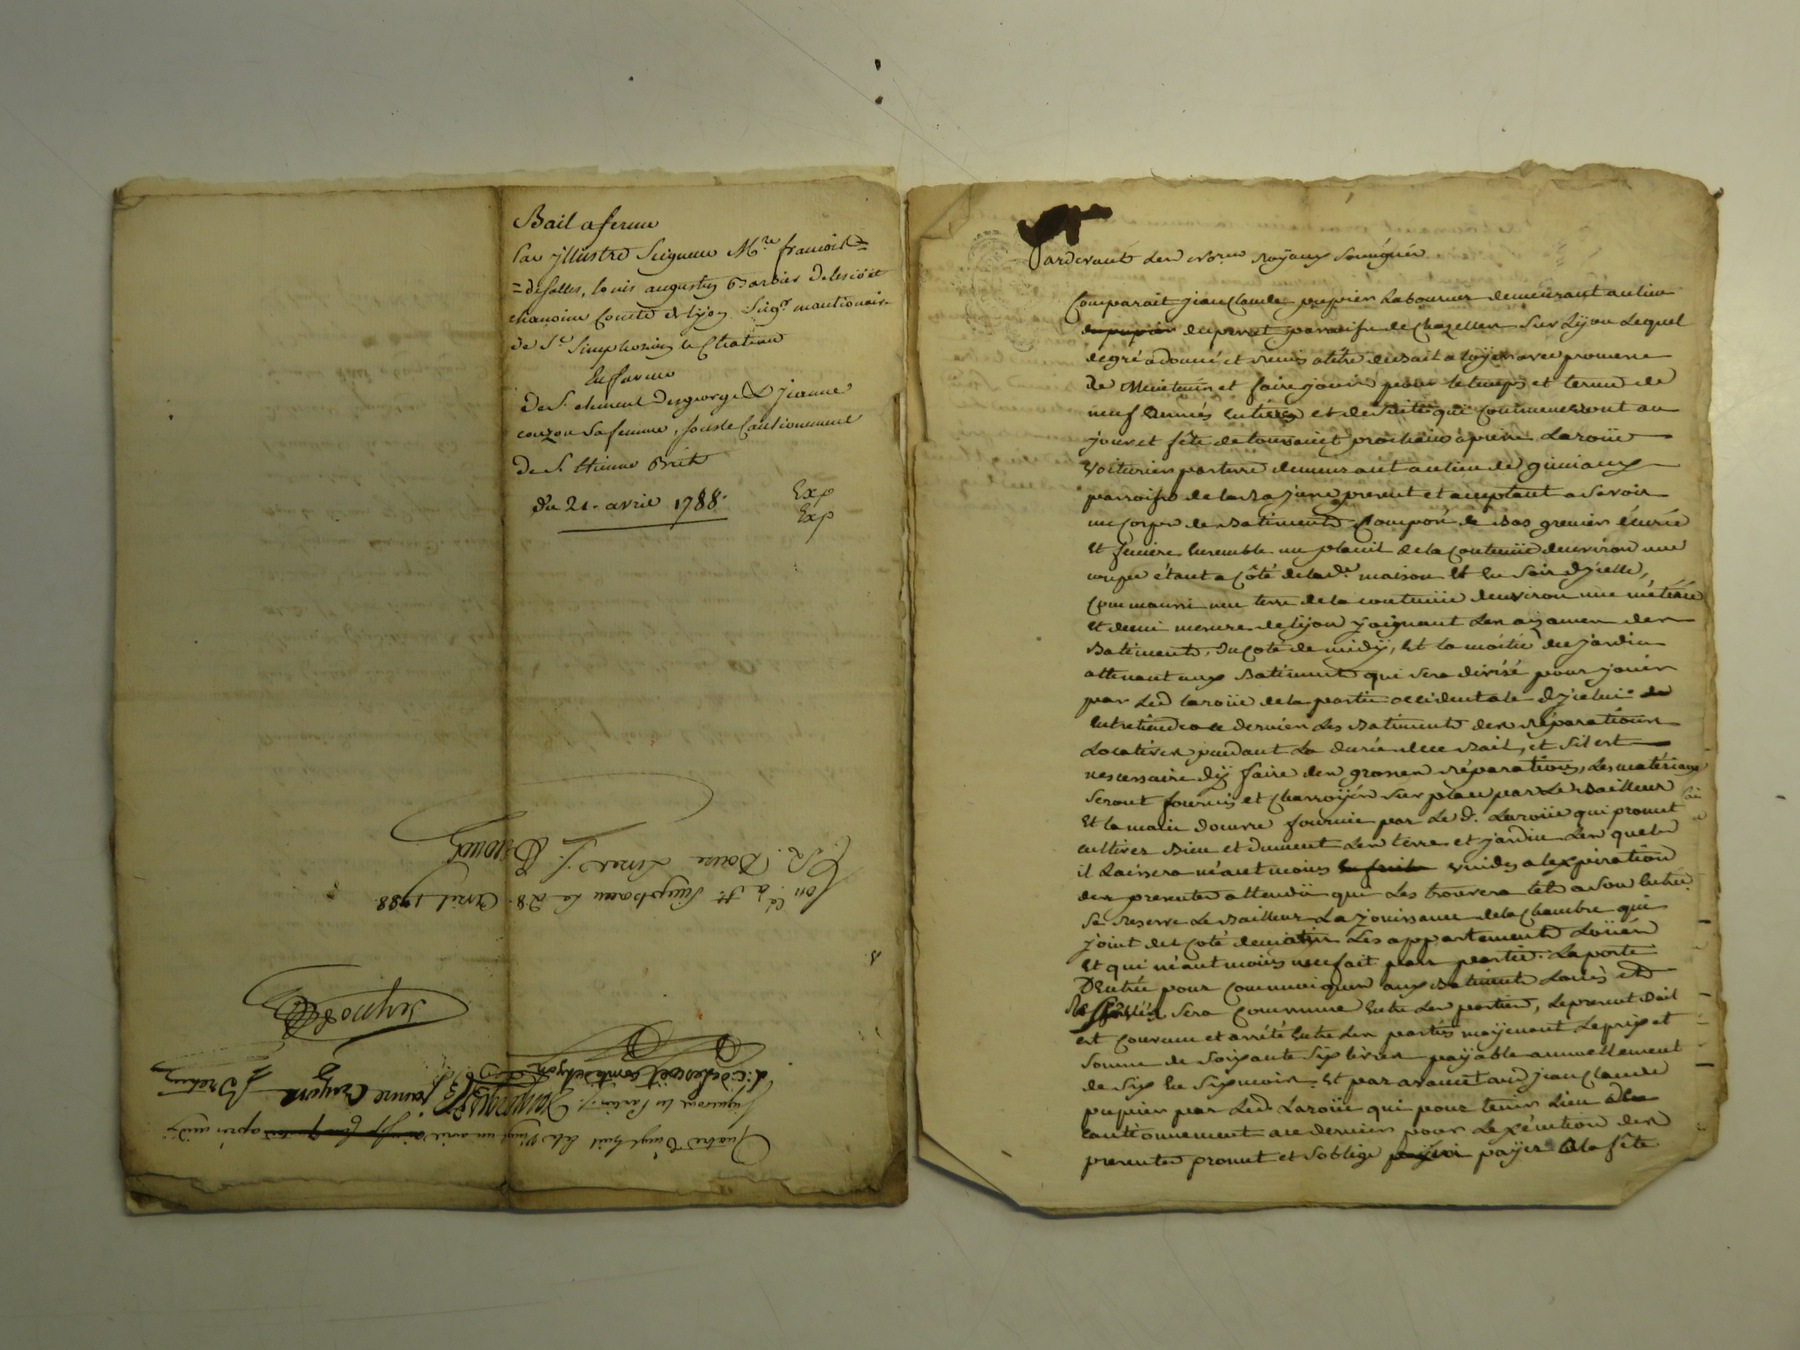 Bail a ferme
Par jllustre Seigneur M.re francois=
=desalles, louis auguste Barbier Delescoët
chanoine Comte de lyon Seig.r mantionaire
de S.t Simphorien le Chateau
En faveur
De S.r clement Desgorges & Jeanne
couzon Sa femme, sous le Cautionnement
de S.r Etienne Brét
Du 21. avril 1788. Exp
Exp
Quatre Vingt huit le Vingt un avril après midi
Signeront les Parties
Delescoët comte de lyon
jeanne Couzon
Con.lé à St Simphorien le 28. Avril 1788.
R. Douze Livres
Pardevant Les No.res Royaux Soussignés
Comparait jean Claude pupier Laboureur demeurant au lieu
du pervet parroisse de Chazelles Sur Lyon Lequel
de gré a donné et remis a titre de Bail a loyer avec promesse
de Maintenir et faire jouir pour le temps et terme de
neuf années entieres et de suite qui commenceront au
jour et fête de toussaint prochain a pierre Laroüe
Voiturier par terre demeurant au lieu de
parroisse de Larajasse present et acceptant a Savoir
un Corps de Batiments Composé de Bas grenier écurie
et feniere Ensemble un placit de la Contenüe d'environ une
coupée étant a Côté de la d.e maison et en Soir d'jcelle,
Comme aussi une terre de la contenüe d'environ une métérée
et demi mesure de lyon joignant Les aisances des
Batiments, du coté de midy, et la moitié du jardin
attenant aux Batiments qui sera divisé pour jouir
par Led. laroüe de la partie occidentale d'jcelui
Entretiendra ce dernier Les Batiments des réparations
Locatives pendant La durée de ce Bail, et S'il est
necessaire d'y faire des grosses réparations, les matériaux
Seront fournis et charroyés sur place par Le Bailleur
Et la main d'oeuvre fournie par Le d. Laroüe qui promet
cultiver Bien et dument Les terres et jardin Les quels
il Laissera néantmoins vuides a l'expiration
des presentes attendû qu'il Les trouvera tels a Son Entrée
Se reserve Le Bailleur La jouissance de la Chambre qui
joint du coté de matin Les appartements Loüés
Et qui néantmoins ne fait pas partie. La porte
D'Entrée pour communiquer aux Batiments Loués et
Reservés Sera Commune Entre Les parties, Le present Bail
est convenu et arrété Entre Les parties moyennant Le prix et
Somme de Soixante Six livres payable annuellement
de Six En Six mois. Et par avance aud jean Claude
pupier par Led. Laroüe qui pour tenir Lieu de
Cautionnement a ce dernier pour L'exécution des
presentes promet et S'oblige payer a la fête